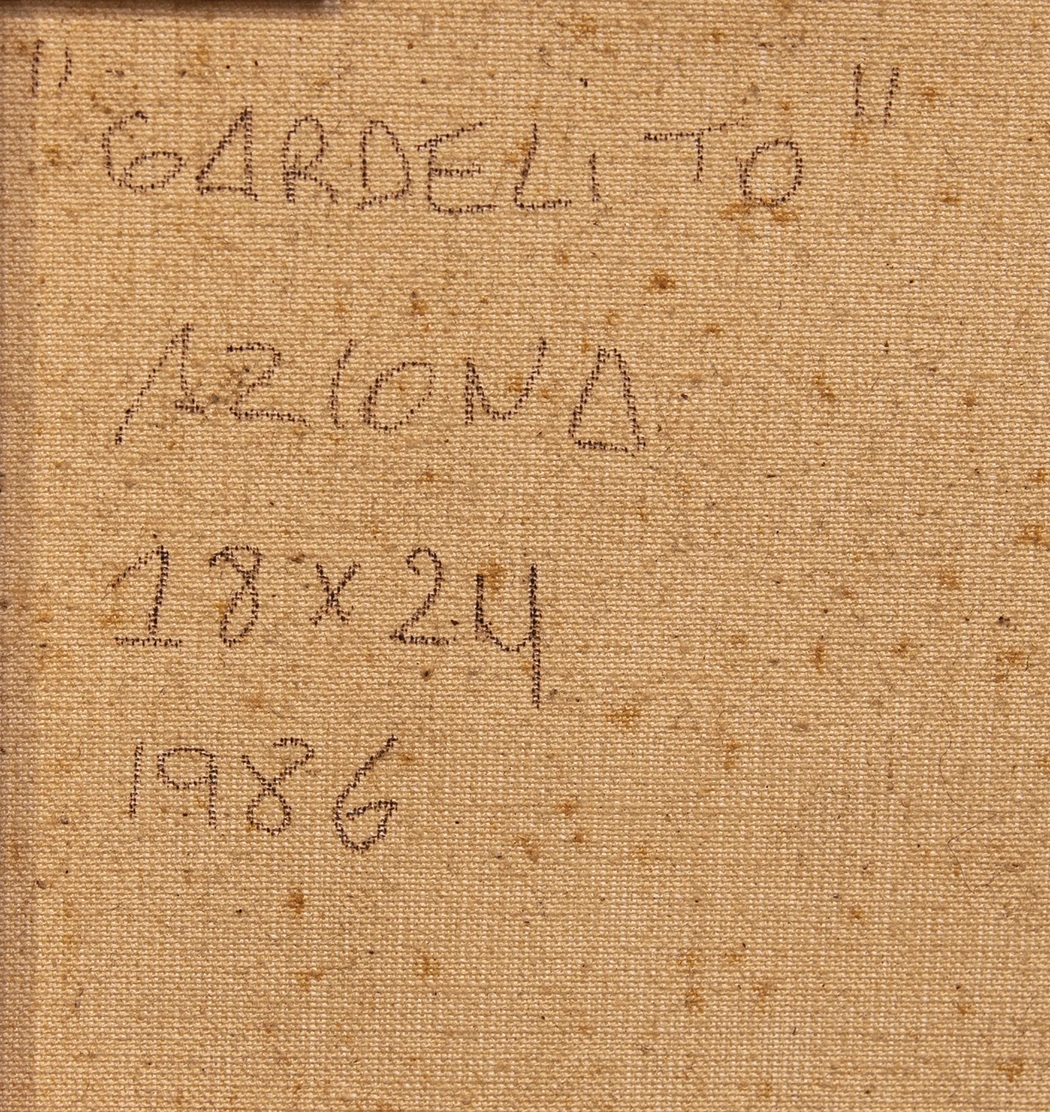 "GARDELITO"
AZIONA
18x24
1986